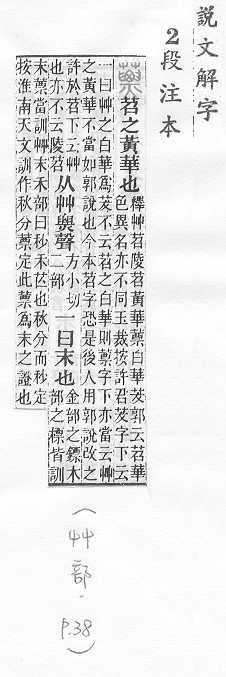 說文解字
2段注本
蔈 苕之黃華也 釋艸苕陵苕黃華蔈白華茇郭云苕華
色異名亦不同玉裁按許君茇字下云
一曰艸之白華爲茇不云苕之白華則蔈字下亦當云艸
之黃華不當如郭說也今本苕字恐是後人用郭說改之
許於苕下云艸
也亦不云陵苕 从艸㶾聲 方小切
二部 一曰末也 金部之鏢木
部之標皆訓
末蔈當訓艸末禾部曰秒禾芒也秋分而秒定
按淮南天文訓作秋分蔈定此蔈爲末之證也
(艸部. P.38)